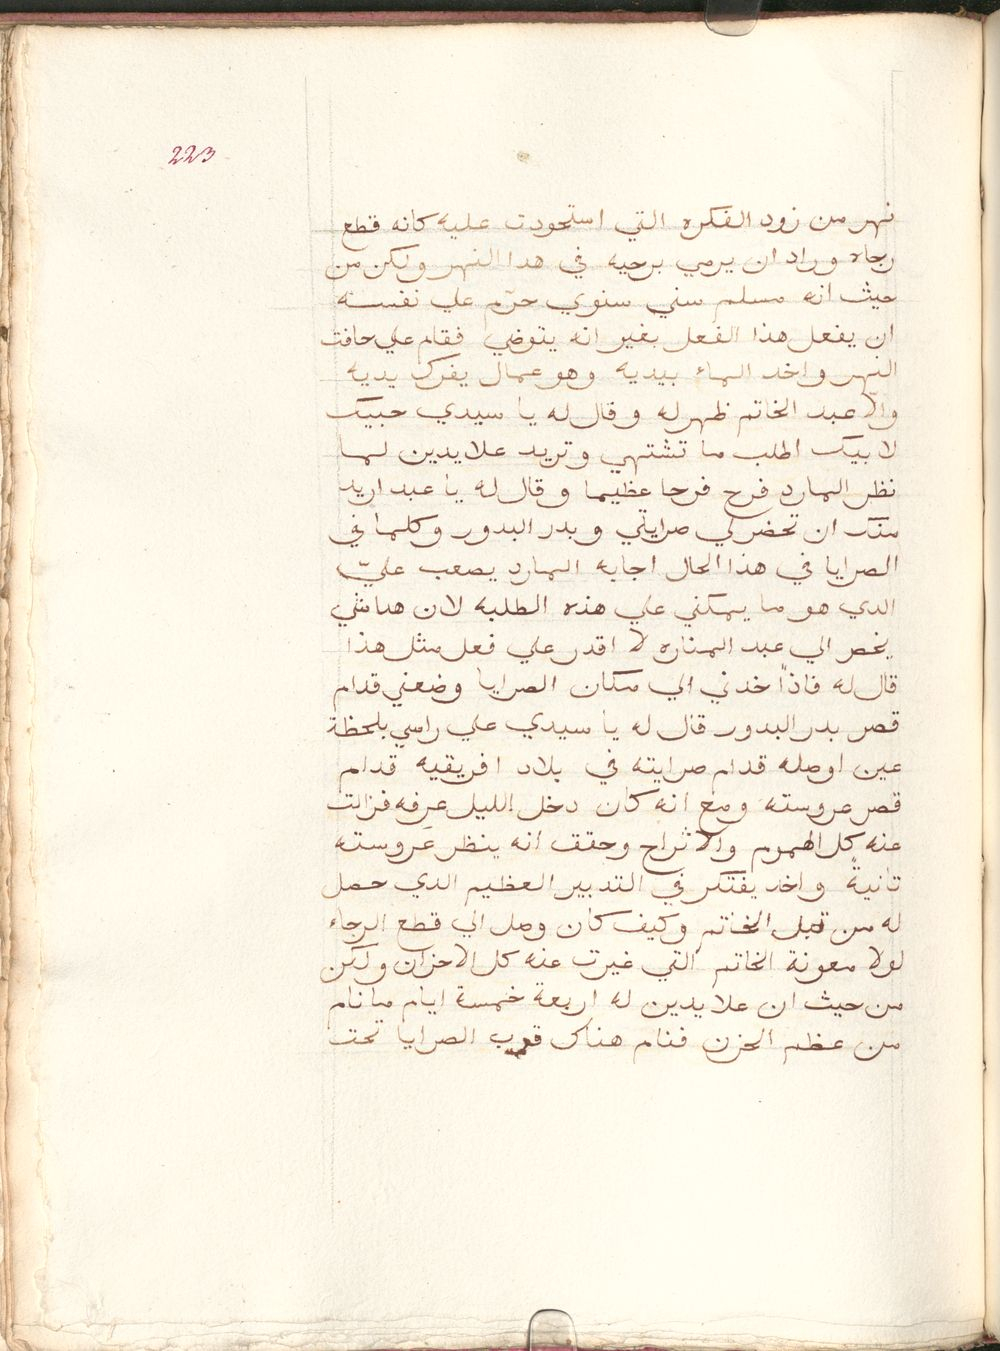 223
نهر من زود الفكره التي استحودت عليه كانه قطع
رجاه وراد ان يرمي برحيه في هدا النهر ولكن من
حيث انه مسلم سني سنوي حرّم علي نفسه
ان يفعل هذا الفعل بغير انه يتوضي فقام علي حافت
النهر واخد الماء بيديه وهو عمال يفرك يديه
والّا عبد الخاتم ظهر له وقال له يا سيدي حبيك
لا بيك اطلب ما تشتهي وتريد علايدين لما
نظر المارد فرح فرحا عظيما وقال له يا عبد اريد
منك ان تحضر لي صرايتي وبدر البدور وكلما في
الصرايا في هذا الحال اجابه المارد يصعب عليّ
الدي هو ما يمكني علي هذه الطلبه لان هداشي
يخص الي عبد المناره لا اقدر علي فعل مثل هذا
قال له فاذاً خدني الي مكان الصرايا وضعني قدام
قصر بدر البدور قال له يا سيدي علي راسي بلحظة
عين اوصله قدام صرايته في بلاد افريقيه قدام
قصر عروسته ومع انه كان دخل الليل عرفه فزالت
عنه كل الهموم والاتراح وحقق انه ينظر عروسته
تانيةً واخد يفتكر في التدبير العظيم الدي حصل
له من قبل الخاتم وكيف كان وصل الي قطع الرجاء
لولا معونة الخاتم التي غيرت عنه كل الاحزان ولكن
من حيث ان علايدين له اربعة خمسة ايام ما نام
من عظم الحزن فنام هناك قرب الصرايا تحت